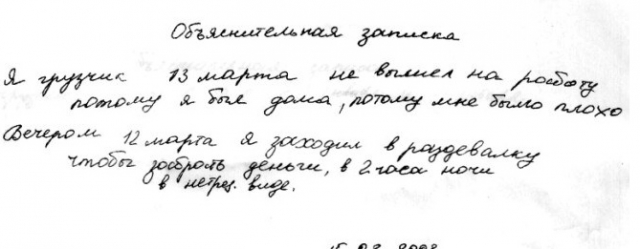 Объяснительная записка
Я грузчик 13 марта не вышел на работу
потому я был дома, потому мне было плохо
Вечером 12 марта я заходил в раздевалку
чтобы забрать деньги, в 2 часа ночи
в нетрез. виде.